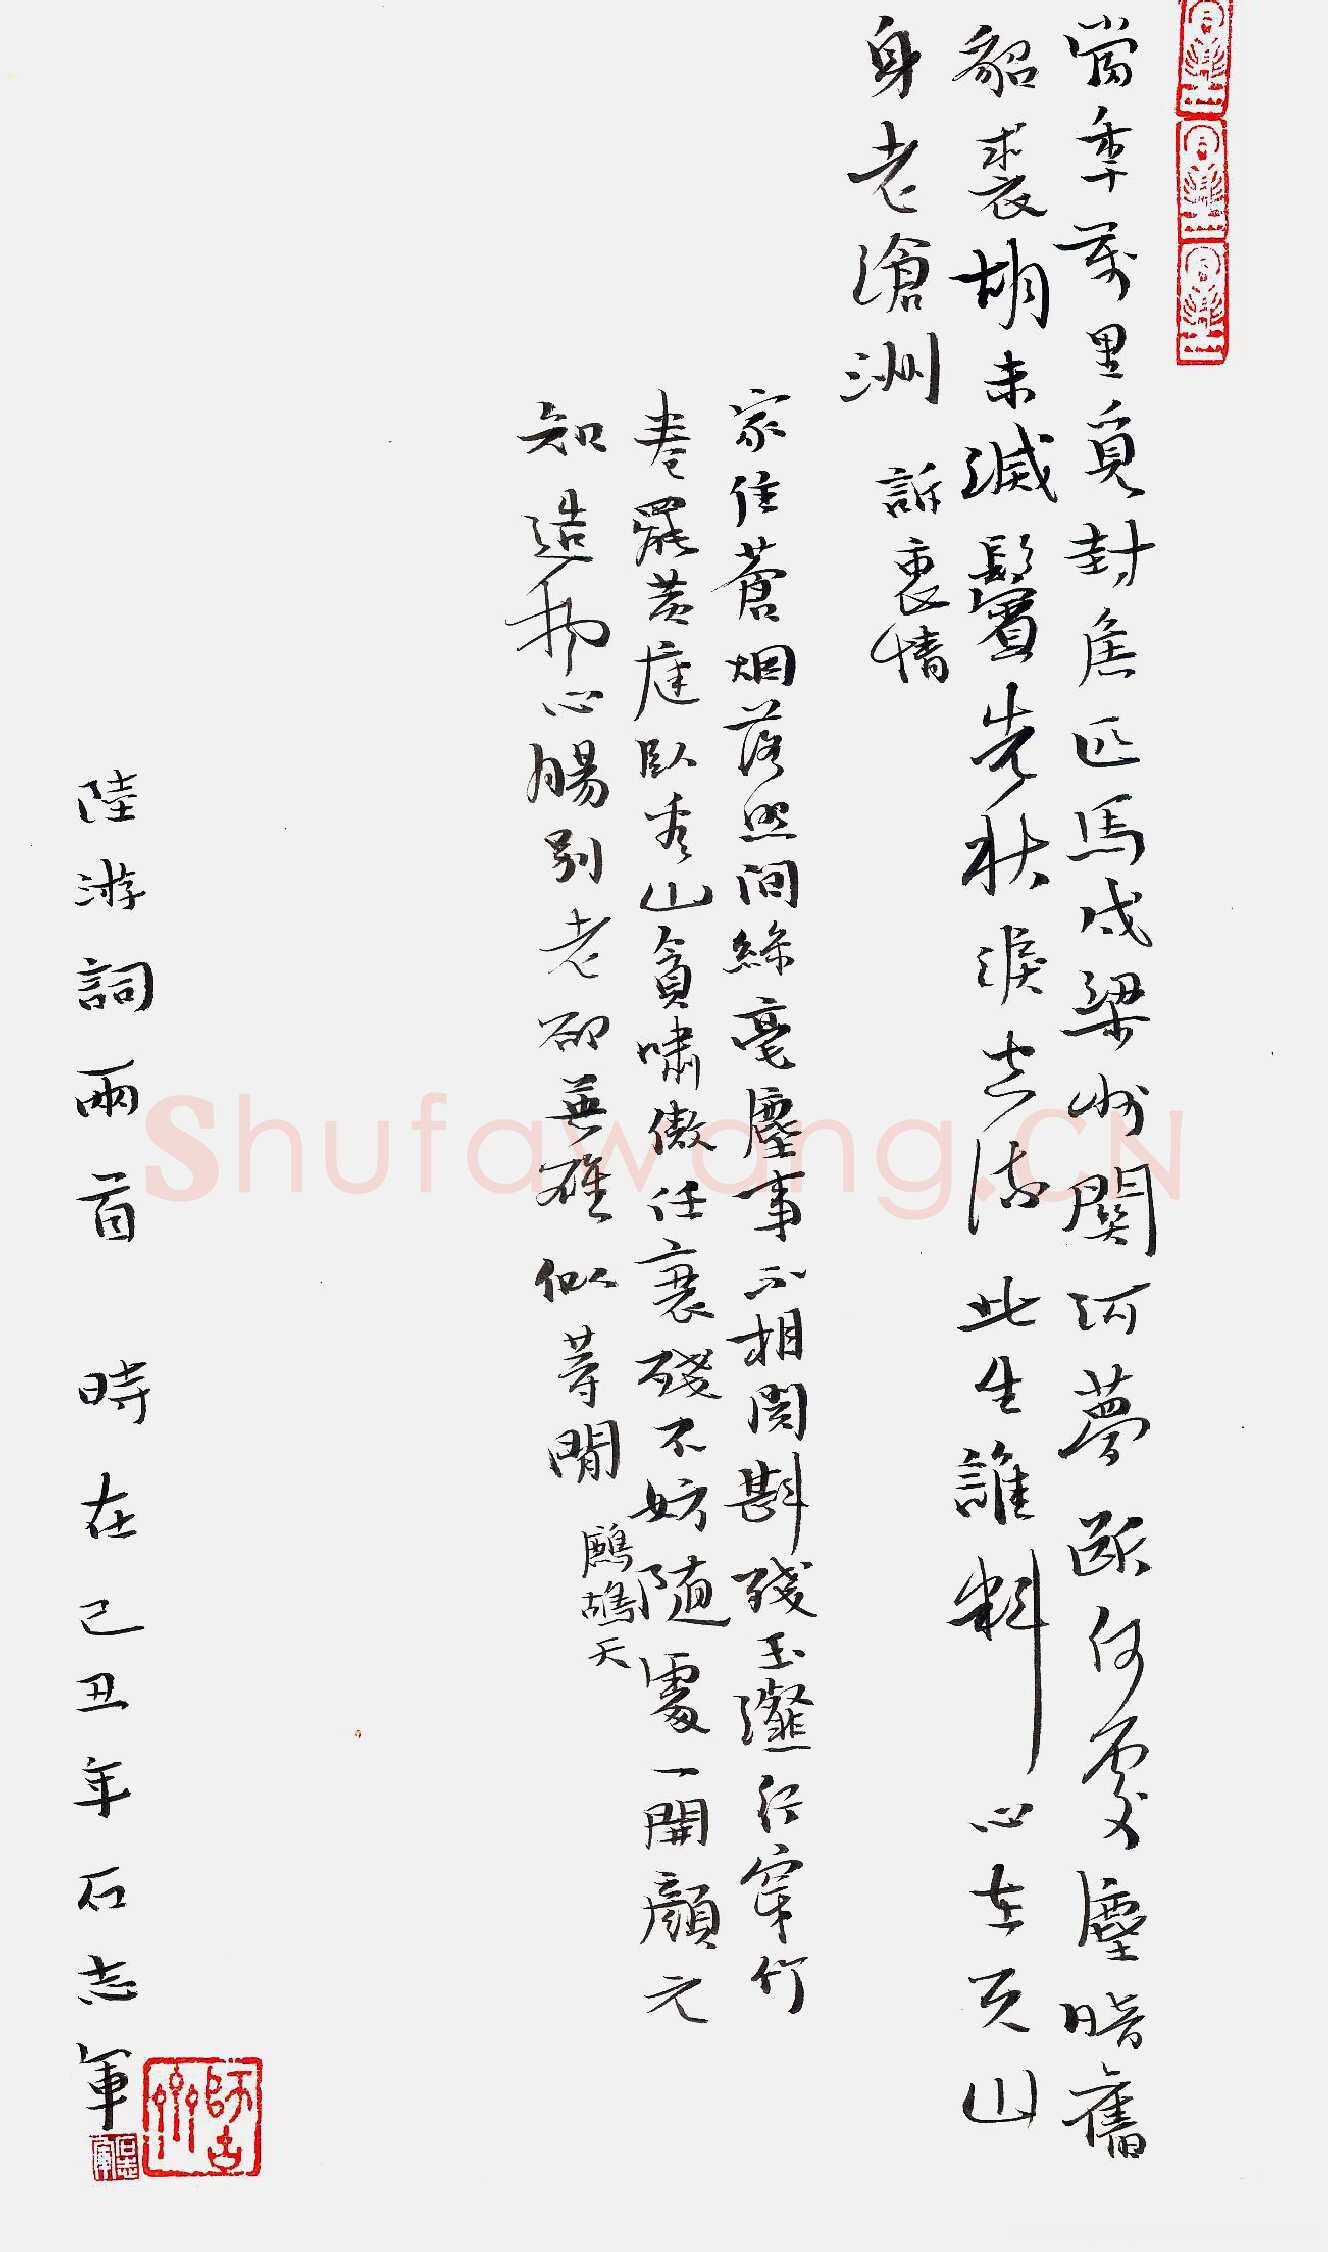 當秊萬里覓封侯匹馬戍梁州關河夢斷何處塵暗舊
貂裘胡未滅鬢先秋淚空流此生誰料心在天山
身老滄洲 訴衷情
家住蒼烟落照间絲毫塵事不相関斟殘玉瀣行穿竹
卷罷黃庭臥看山貪嘯傲任衰殘不妨隨處一開顏元
知造物心腸別老卻英雄似等閒 鷓鴣天
陸游詞兩首 時在己丑年石志軍
Shufawang.CN